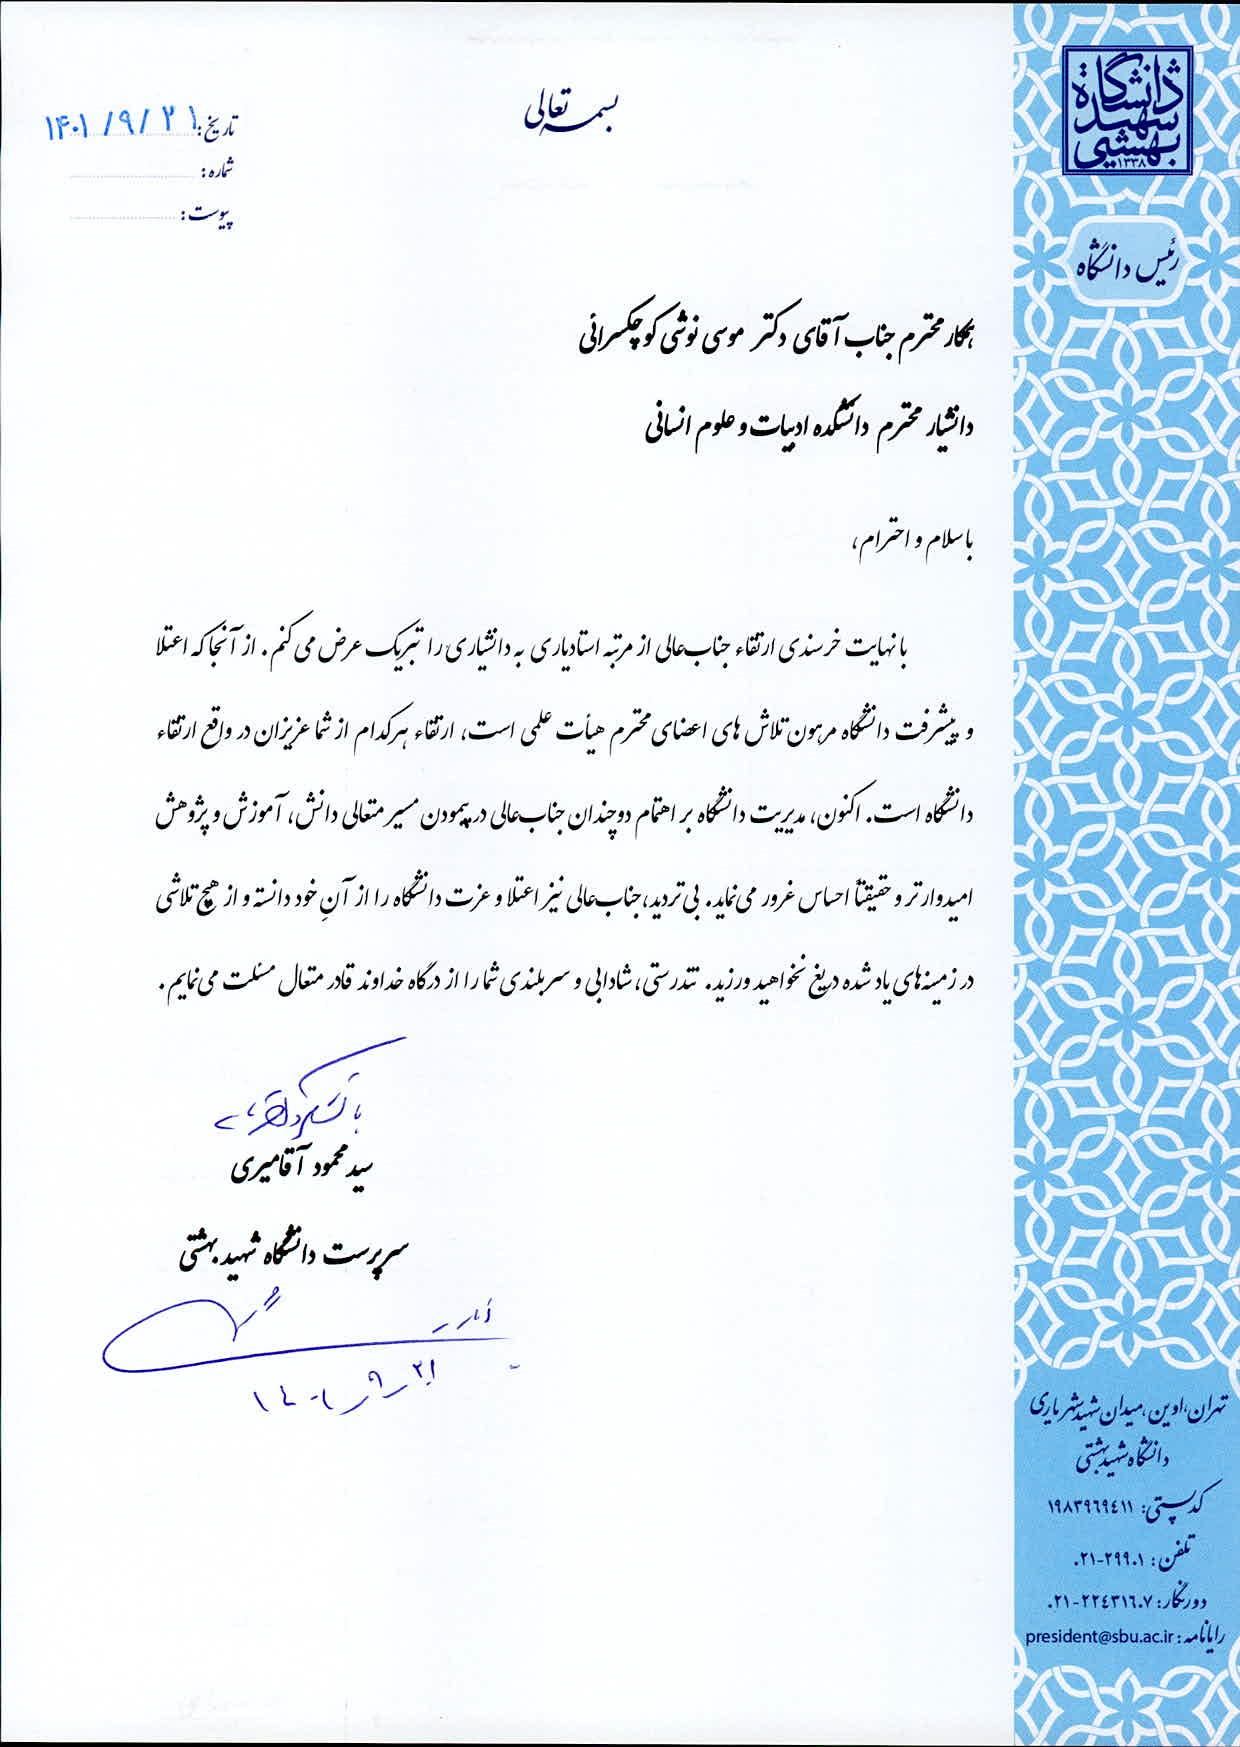 دانشگاه
شهید
بهشتی
۱۳۳۸
رئیس دانشگاه
بسمه تعالی
تاریخ: ۱۴۰۱/۹/۲۱
شماره:
پیوست:
همکار محترم جناب آقای دکتر موسی نوشی کوچکسرائی
دانشیار محترم دانشکده ادبیات و علوم انسانی
با سلام و احترام،
با نهایت خرسندی ارتقاء جناب‌عالی از مرتبه استادیاری به دانشیاری را تبریک عرض می کنم. از آنجا که اعتلا
و پیشرفت دانشگاه مرهون تلاش های اعضای محترم هیأت علمی است، ارتقاء هرکدام از شما عزیزان در واقع ارتقاء
دانشگاه است. اکنون، مدیریت دانشگاه بر اهتمام دوچندان جناب‌عالی در پیمودن مسیر متعالی دانش، آموزش و پژوهش
امیدوارتر و حقیقتاً احساس غرور می‌نماید. بی تردید، جناب‌عالی نیز اعتلا و عزت دانشگاه را از آنِ خود دانسته و از هیچ تلاشی
در زمینه‌های یاد شده دریغ نخواهید ورزید. تندرستی، شادابی و سربلندی شما را از درگاه خداوند قادر متعال مسئلت می‌نمایم.
سید محمود آقامیری
سرپرست دانشگاه شهید بهشتی
۱۴۰۱/۹/۲۱
تهران، اوین، میدان شهید شهریاری
دانشگاه شهید بهشتی
کد پستی: ۱۹۸۳۹۶۹۴۱۱
تلفن: ۰۲۱-۲۹۹۰۱
دورنگار: ۰۲۱-۲۲۴۳۱۶۰۷
رایانامه: president@sbu.ac.ir